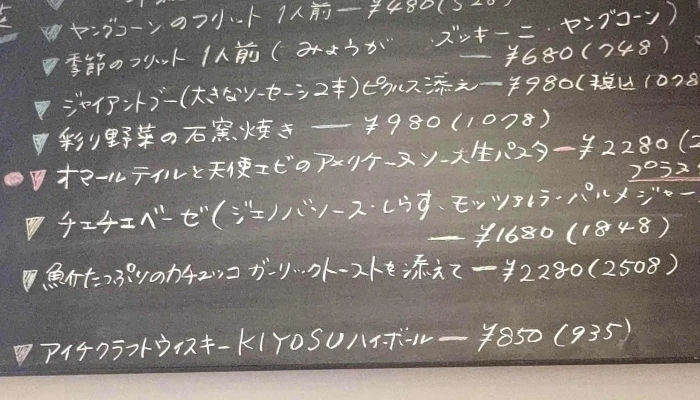 ヤングコーンのフリット 1人前 ー ¥480(528)
季節のフリット 1人前 ( みょうが ・ ズッキーニ ・ ヤングコーン )
ー ¥680(748)
ジャイアントブー(大きなソーセージ2本)ピクルス添え ー ¥980(税込1078
彩り野菜の石窯焼き ー ¥980(1078)
オマールテイルと天使エビのアメリケーヌソース生パスタ ー ¥2280(2
プラス
チェチェベーゼ(ジェノバソース・しらす、モッツァレラ・パルメジャー
ー ¥1680(1848)
魚介たっぷりのカチュッコ ガーリックトーストを添えて ー ¥2280(2508)
アイチクラフトウィスキーKIYOSUハイボール ー ¥850(935)